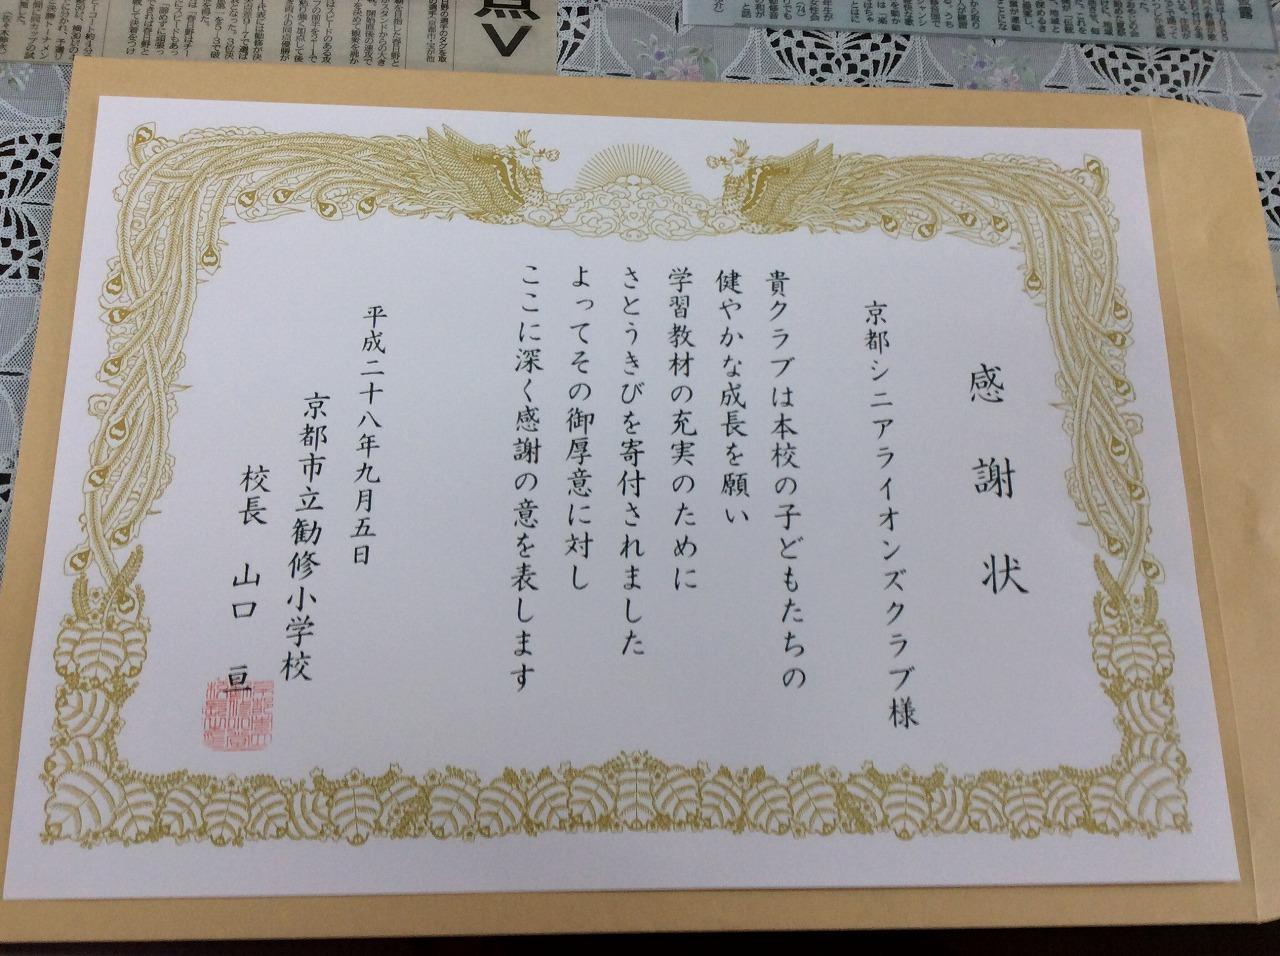 感謝状
京都シニアライオンズクラブ様
貴クラブは本校の子どもたちの
健やかな成長を願い
学習教材の充実のために
さとうきびを寄付されました
よってその御厚意に対し
ここに深く感謝の意を表します
平成二十八年九月五日
京都市立勧修小学校
校長 山口 亘